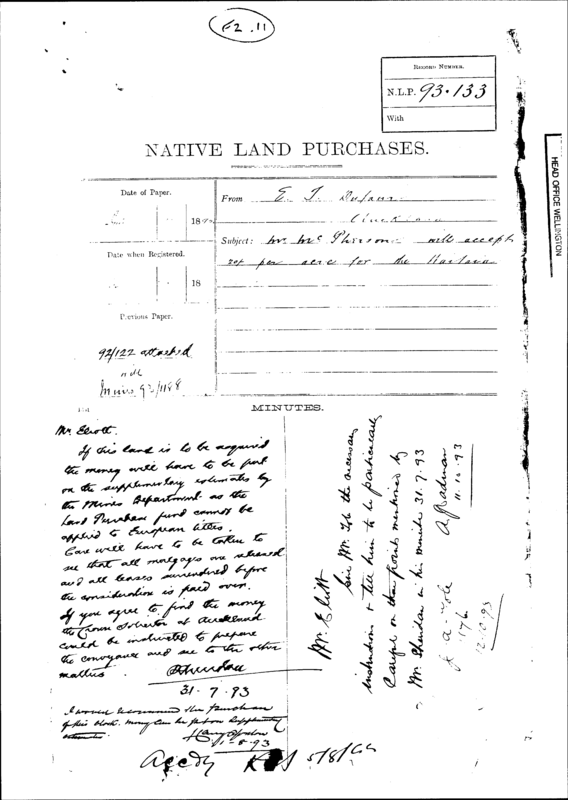 F2.11
RECORD NUMBER.
N.L.P. 93.133
With
NATIVE LAND PURCHASES.
HEAD OFFICE WELLINGTON
Date of Paper.
18
Date when Registered.
18
Previous Paper.
92/122 attached
with
Mines 92/1188
From E. T. Dufaur
Auckland
Subject: Mr. Mc will accept
per acre for the
MINUTES.
Mr. Eliott.
If this land is to be acquired
the money will have to be put
on the supplementary estimates by
the Mines Department as the
Land Purchase fund cannot be
applied to European titles.
Care will have to be taken to
see that all mortgages are released
and all leases surrendered before
the consideration is paid over.
If you agree to find the money
the Crown Solicitor at Auckland
could be instructed to prepare
the conveyance and see to the other
matters.
Sheridan
31.7.93
I would recommend the purchase
of this block. money can be put on Supplementary
estimates
1-8-93
5/8/
Mr. Eliott
Give Mr. the necessary
instructions & tell him to be particularly
careful on the points mentioned by
Mr. Sheridan in his minute 31.7.93
A. Cadman
11.10.93
12.10.93